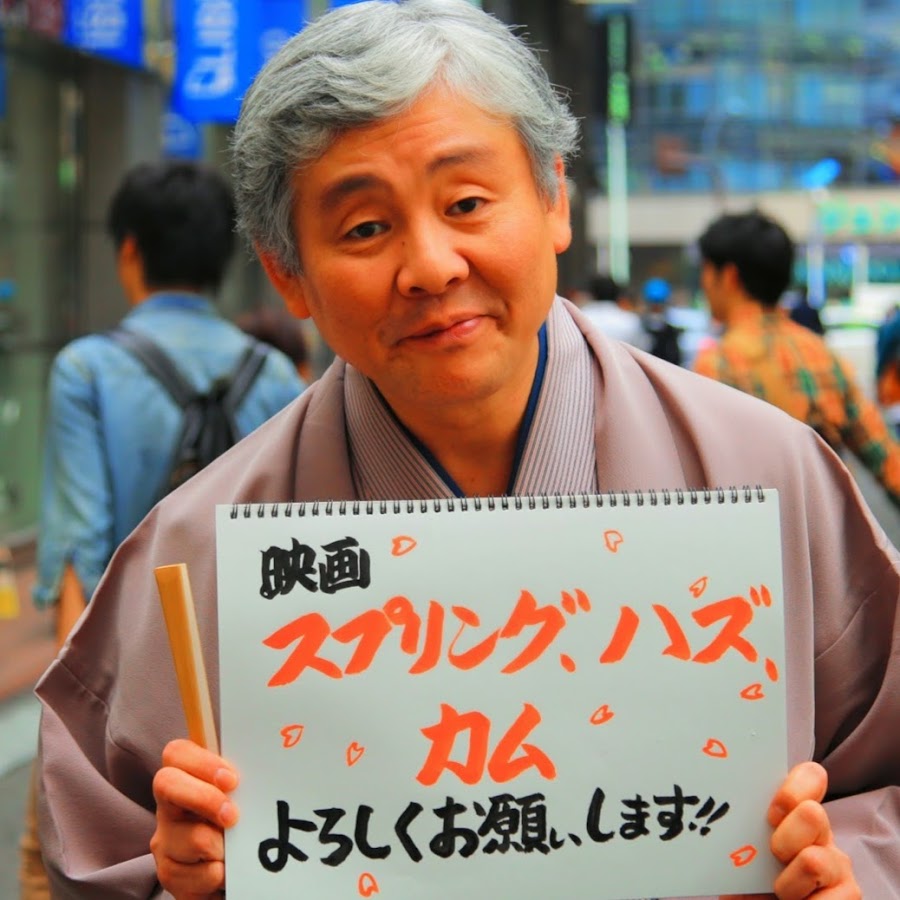 映画
スプリング、ハズ、
カム
よろしくお願いします!!